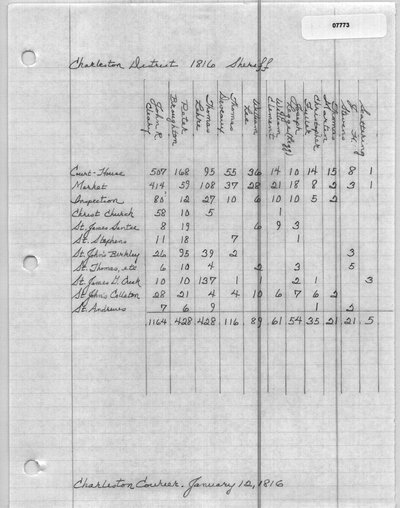 07773
Charleston District 1816 Sheriff
John R. Cleary
Peter Broughton
Thomas
Thomas Deveaux
William Lee
William Clement
Joseph Legge (Legg)
Christopher Fuller
Thomas Martin
J. H. Stevens
Scattering
Court-House 507 168 95 55 36 14 10 14 15 8 1
Market 414 59 108 37 28 21 18 8 2 3 1
Inspection 80 12 27 10 6 10 10 5 2
Christ Church 58 10 5 1
St. James Santee 8 19 6 9 3
St. Stephens 11 18 7 1
St. John's Berkley 26 95 39 2 3
St. Thomas, etc 6 10 4 2 3 5
St. James G. Creek 10 10 137 1 1 2 1 3
St. John's Colleton 28 21 4 4 10 6 7 6 2
St. Andrews 7 6 9 1 2
1164 428 428 116 89 61 54 35 21 21 5
Charleston Courier. January 12, 1816